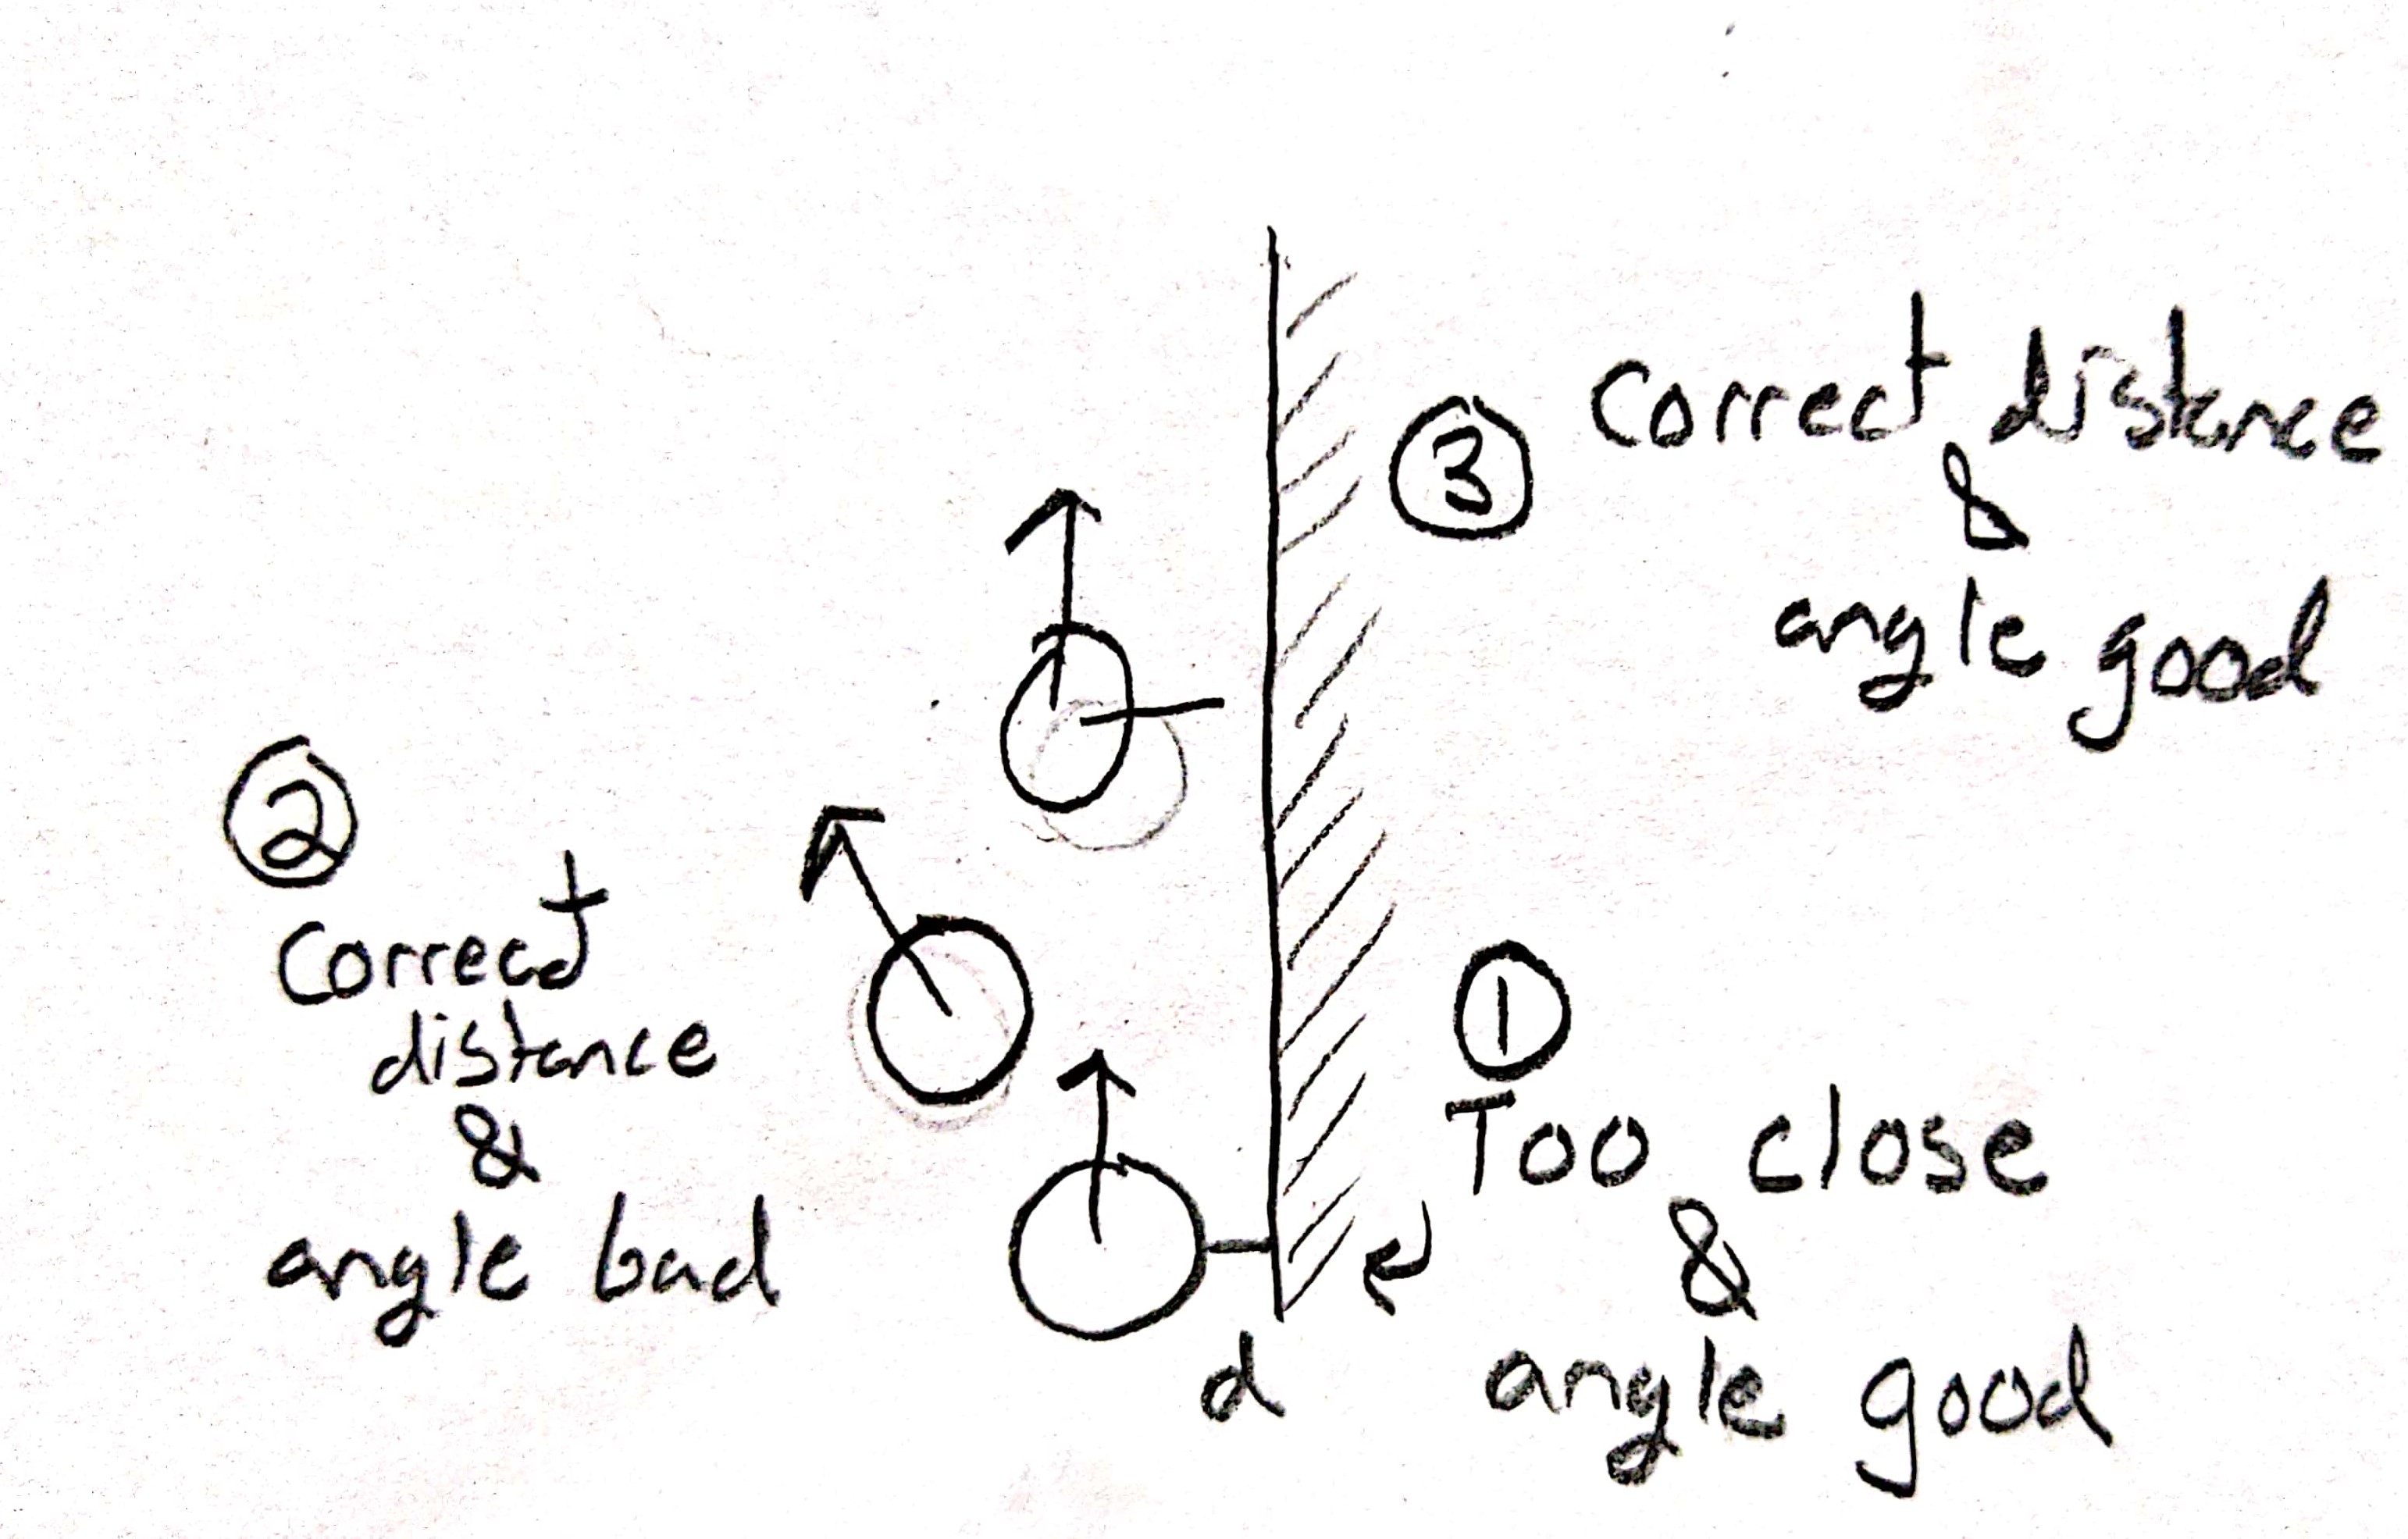 3 Correct distance
&
angle good
2
Correct
distance
&
angle bad
1
Too close
&
angle good
d